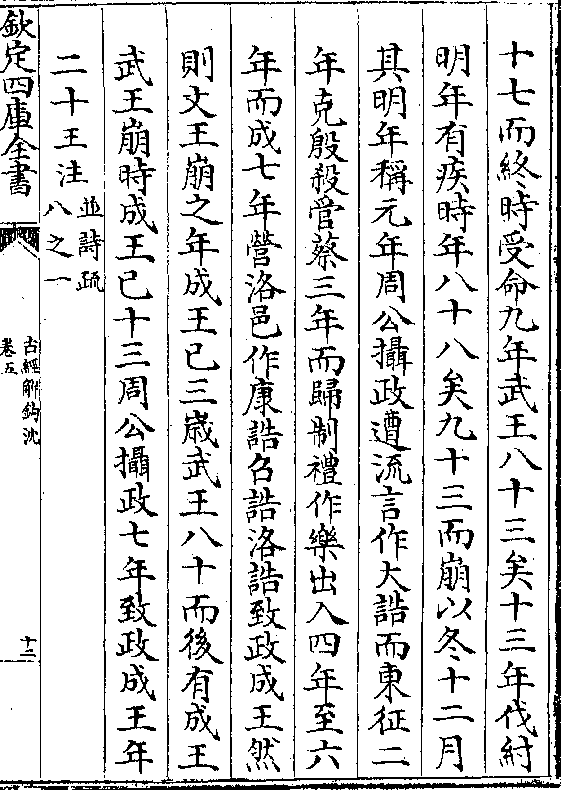 十七而終時受命九年武王八十三矣十三年伐紂
明年有疾時年八十八矣九十三而崩以冬十二月
其明年稱元年周公攝政遭流言作大誥而東征二
年克殷殺管蔡三年而歸制禮作樂出入四年至六
年而成七年營洛邑作康誥召誥洛誥致政成王然
則文王崩之年成王已三歲武王八十而後有成王
武王崩時成王已十三周公攝政七年致政成王年
二十王注並詩疏
八之一
欽定四庫全書
古經解鉤沈
卷五
十二